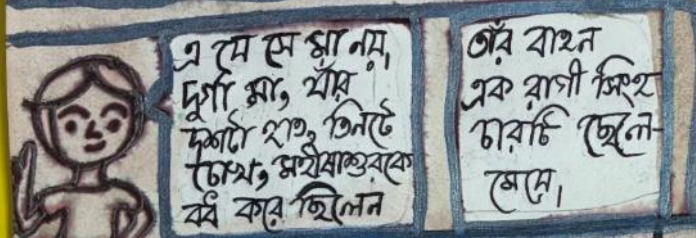 এ যে সে মা নয়,
দুর্গা মা, যাঁর
দশটা হাত, তিনটে
চোখ, মহীষাশুরকে
বধ করে ছিলেন
তাঁর বাহন
এক রাগী সিংহ
চারটি ছেলে-
মেয়ে।